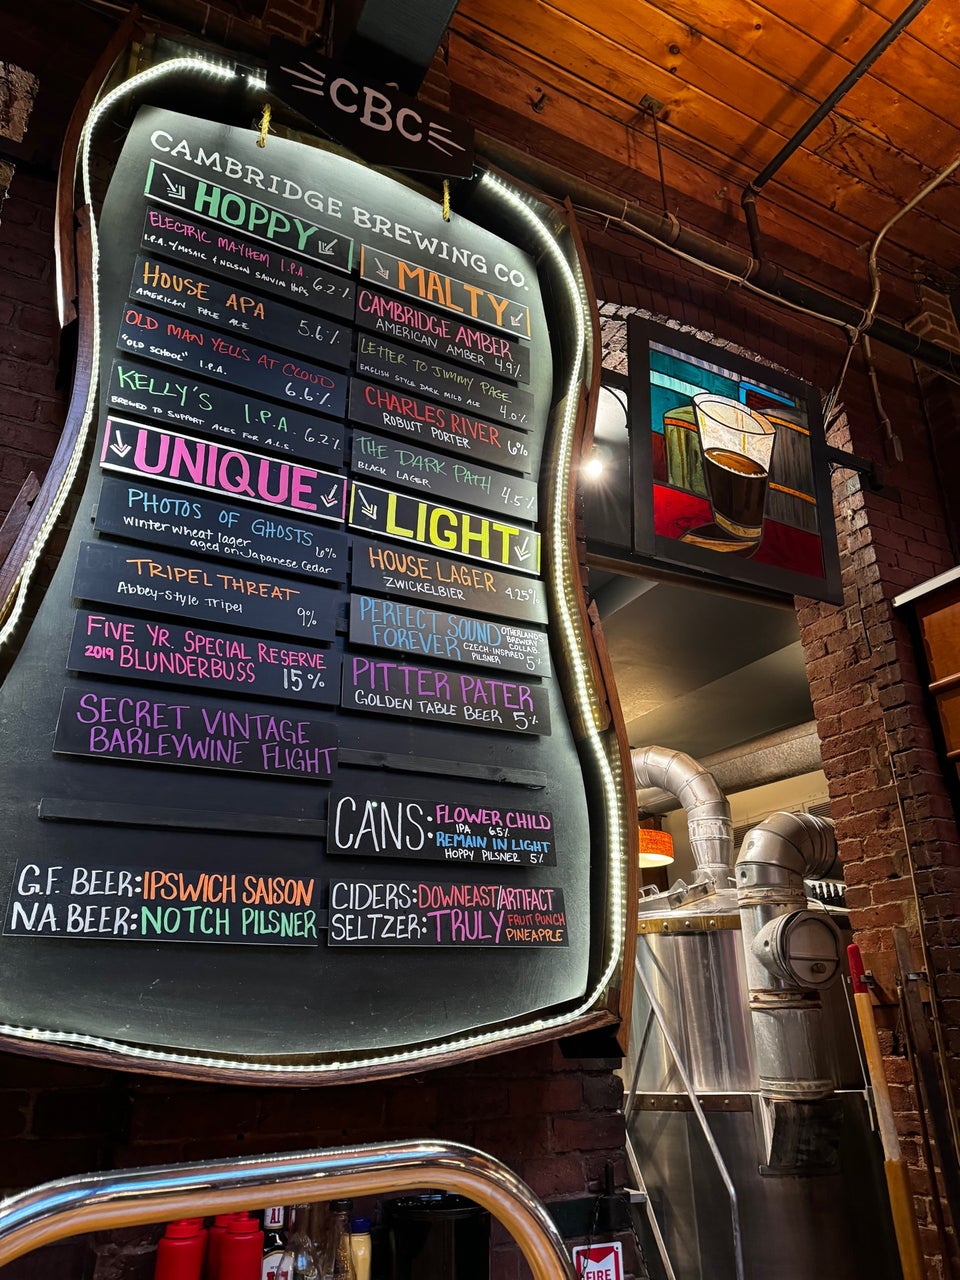 CBC
CAMBRIDGE BREWING CO.
HOPPY
ELECTRIC MAYHEM I.P.A.
I.P.A. W/MOSAIC & NELSON SAUVIN HOPS 6.2%
HOUSE APA
AMERICAN PALE ALE 5.6%
OLD MAN YELLS AT CLOUD
"OLD SCHOOL" I.P.A. 6.6%
KELLY'S I.P.A.
BREWED TO SUPPORT ALES FOR A.L.S. 6.2%
UNIQUE
PHOTOS OF GHOSTS
winter wheat lager
aged on Japanese Cedar
TRIPEL THREAT
Abbey-Style Tripel 9%
FIVE YR. SPECIAL RESERVE
2019 BLUNDERBUSS 15%
SECRET VINTAGE
BARLEYWINE FLIGHT
MALTY
CAMBRIDGE AMBER
AMERICAN AMBER 4.9%
LETTER TO JIMMY PAGE
ENGLISH STYLE DARK MILD ALE 4.0%
CHARLES RIVER
ROBUST PORTER 6%
THE DARK PATH
BLACK LAGER 4.5%
LIGHT
HOUSE LAGER
ZWICKELBIER 4.25%
PERFECT SOUND
FOREVER
OTHERLANDS
BREWERY
COLLAB.
CZECH-INSPIRED
PILSNER 5%
PITTER PATER
GOLDEN TABLE BEER 5%
CANS: FLOWER CHILD
IPA 6.5%
REMAIN IN LIGHT
HOPPY PILSNER 5%
G.F. BEER: IPSWICH SAISON
N.A. BEER: NOTCH PILSNER
CIDERS: DOWNEAST/ARTIFACT
SELTZER: TRULY FRUIT PUNCH
PINEAPPLE
A1
FIRE